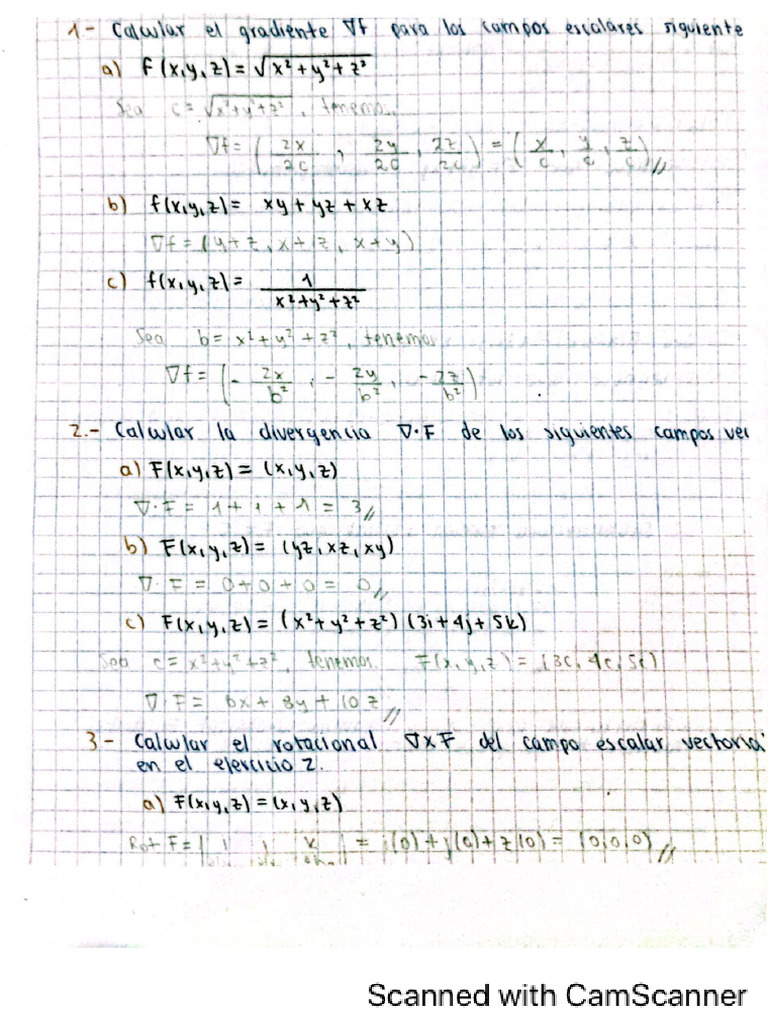 1- Calcular el gradiente ∇f para los campos escalares siguiente
a) f(x,y,z) = √x²+y²+z²
Sea c = √x²+y²+z², tenemos
∇f = (2x/2c, 2y/2c, 2z/2c) = (x/c, y/c, z/c)//
b) f(x,y,z) = xy + yz + xz
∇f = (y+z, x+z, x+y)
c) f(x,y,z) = 1/x²+y²+z²
Sea b = x²+y²+z², tenemos
∇f = (- 2x/b², - 2y/b², - 2z/b²)
2.- Calcular la divergencia ∇·F de los siguientes campos vec
a) F(x,y,z) = (x,y,z)
∇·F = 1+1+1 = 3//
b) F(x,y,z) = (yz, xz, xy)
∇·F = 0+0+0 = 0//
c) F(x,y,z) = (x²+y²+z²)(3i+4j+5k)
Sea c = x²+y²+z², tenemos F(x,y,z) = (3c, 4c, 5c)
∇·F = 6x + 8y + 10z//
3- Calcular el rotacional ∇xF del campo escalar vectorial
en el ejercicio 2.
a) F(x,y,z) = (x,y,z)
Rot F = | i j k | = i(0)+j(0)+z(0) = (0,0,0)//
Scanned with CamScanner